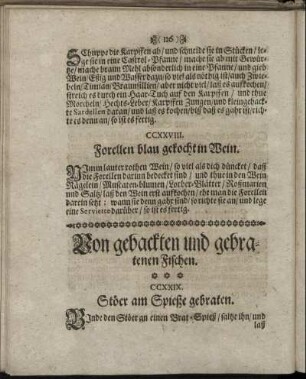 ( 116 )
SChuppe die Karpffen ab / und schneide sie in Stücken / le-
ge sie in eine Castrol-Pfanne / mache sie ab mit Gewür-
tze / mache braun Mehl absonderlich in eine Pfanne / und gieß
Wein Eßig und Wasser dazu / so viel als nöthig ist / auch Zwie-
beln / Timian / Braunsillien / aber nicht viel / laß es aufkochen /
streich es durch ein Haar-Tuch auf den Karpffen / und thue
Morcheln / Hechts-Leber / Karpffen Zungen / und kleingehack-
te Sardellen daran / und laß es kochen / biß daß es gahr ist / rich-
te es denn an / so ist es fertig.
CCXXVIII.
Forellen blau gekocht in Wein.
NImm lauter rothen Wein / so viel als dich düncket / daß
die Forellen darinn bedecket sind / und thue in den Wein
Nägelein / Muscatenblumen / Lorber-Blätter / Roßmarien
und Saltz / laß den Wein erst aufkochen / ehe man die Forellen
darein setzt : wann sie denn gahr sind / so richte sie an / und lege
eine Serviette darüber / so ist es fertig.
Von gebackten und gebra-
tenen Fischen.
CCXXIX.
Stöer am Spieße gebraten.
BInde den Stöer an einen Brat-Spieß / saltze ihn / und
laß